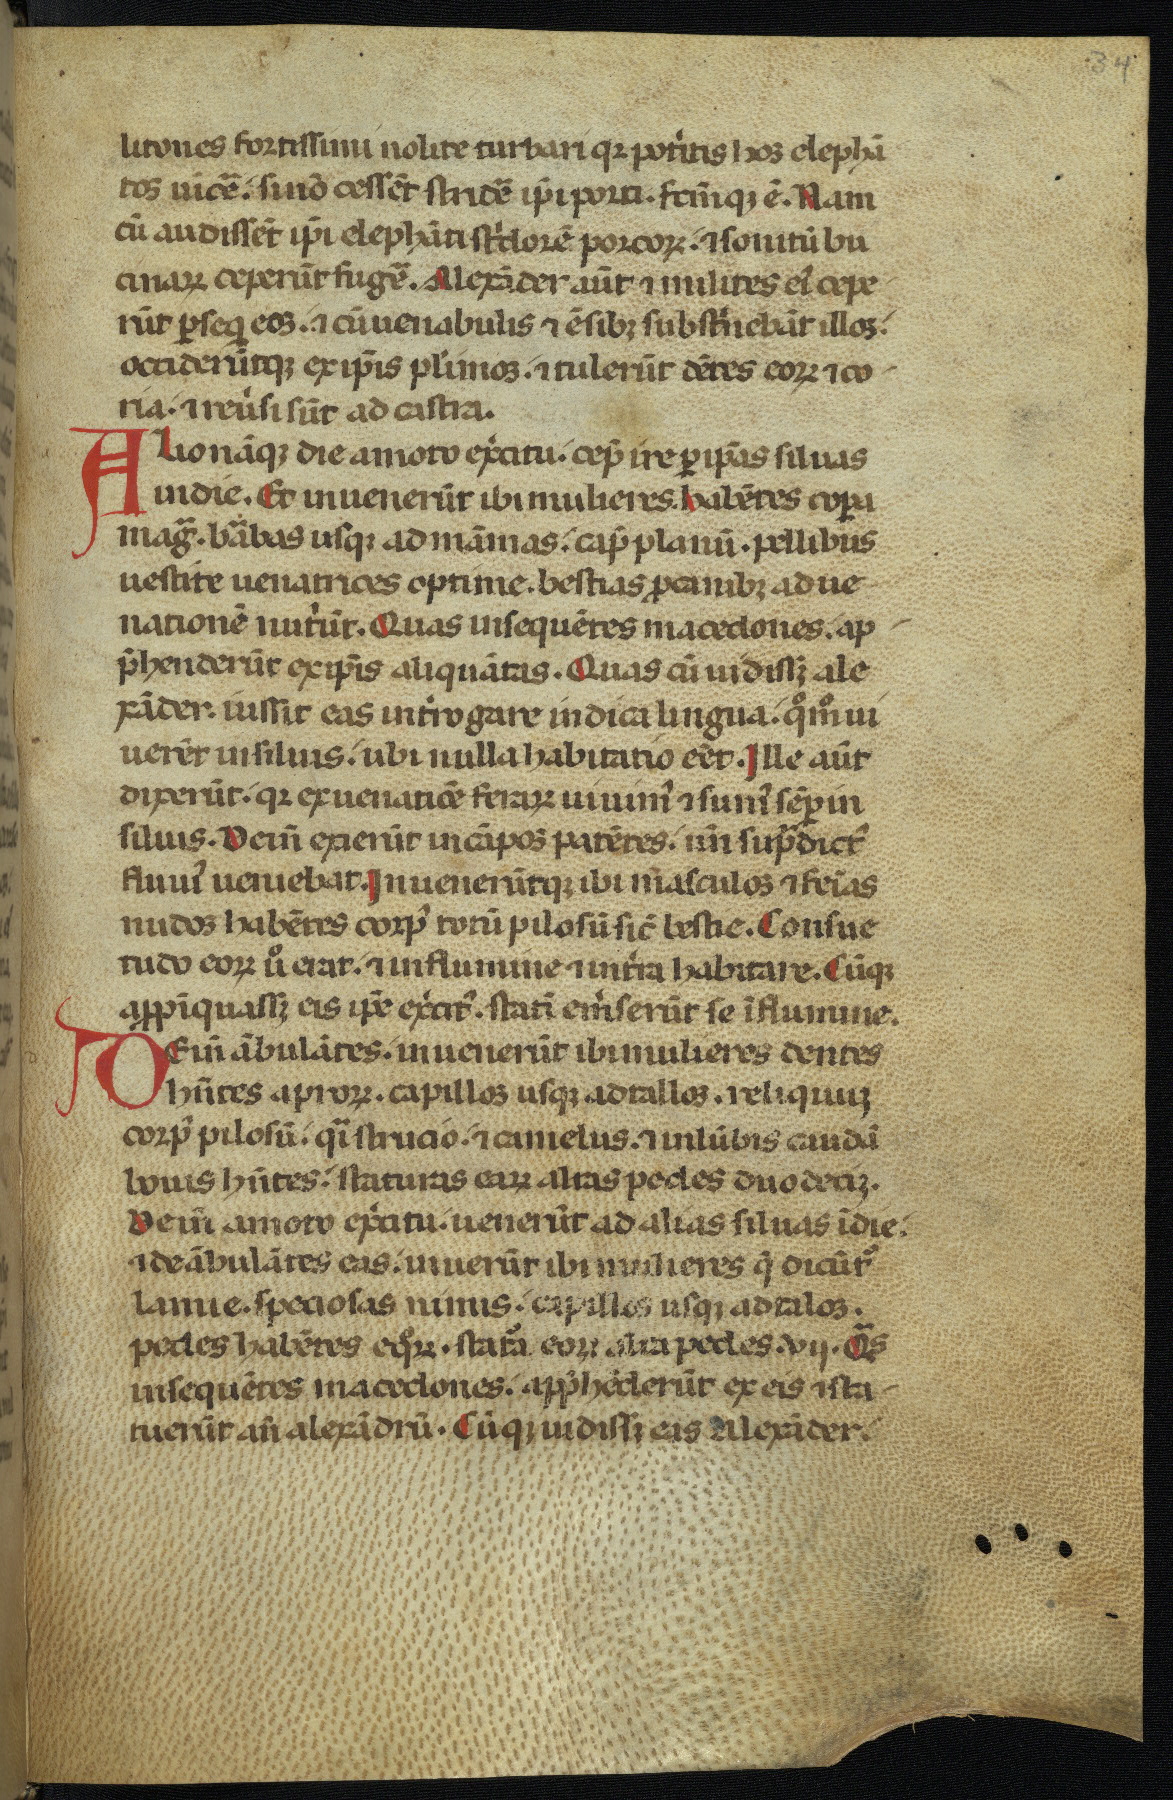 34
litones fortissimi nolite turbari qꝛ pot̾itis hos elephā
tos vīcē. sivō cessēt stridē ip̄i porci. fc̄mqꝫ ē. Nam
cū audissēt ip̄i elephāti st̾dorē porcoꝝ. ⁊ sonitū bu
cinaꝝ ceperūt fugē. Alexāder aūt ⁊ milites eꝰ cepe
rūt ꝑseq eos. ⁊ cū uenabulis ⁊ ēsibꝫ subst̾nebāt illos.
occiderūtqꝫ ex ip̄is pl̾imos. ⁊ tulerūt dētes eoꝝ ⁊ co-
ria. ⁊ reūsi sūt ad castra.
Alio nāqꝫ die amoto exc̾itu. cep̄ ire ꝑ ip̄as siluas
indie. Et inuenerūt ibi mulieres habētes corꝑa
mag̃. bãbas usqꝫ ad māmas. cap̄ planū. pellibus
uestite uenatrices optime. bestias ꝓ canibꝫ ad ue
nationē nut̾iūt. Quas insequētes macedones. ap-
p̄henderūt ex ip̄is aliquātas. Quas cū uidissꝫ ale
xāder. iussit eas int̾rogare indica lingua. qͦmͦ ui
uerēt in siluis. ubi nulla habitatio eēt. Ille aūt
dixerūt. qꝛ ex uenaticē feraꝝ uiuimꝰ ⁊ sumꝰ sēꝑ in
siluis. Dein̄ exierūt in cāpos patētes. un̄ sup̄dictꝰ
fluuiꝰ ueniebat. Inuenerūtqꝫ ibi masculos ⁊ feīas
nudos habētes corpꝰ totū pilosū sic̄ bestie. Consue
tudo eoꝝ uͦ erat. ⁊ in flumine ⁊ int̾ra habitare. Cūqꝫ
apꝓīquassꝫ eis ip̄e exc̾itꝰ. statī em̾serūt se ī flumine.
DEin̄ ābulātes. inuenerūt ibi mulieres dentes
hn̄tes aproꝝ. capillos usqꝫ ad tallos. reliquuꝫ
corpꝰ pilosū. qͣi strucio. ⁊ camelus. ⁊ in lūbis caudā
bouis hn̄tes. staturas eaꝝ altas pedes duodeciꝫ.
Dein̄ amoto exc̾itu. uenerūt ad alias siluas īdie.
⁊ deābulātes eas. inuerūt ibi mulieres q̄ dicūtᷣ
lamie. speciosas nimis. capillos usqꝫ ad talos.
pedes habētes eqͦꝝ. statᷓa eoꝝ alta pedes. vij. Qᷓs
insequētes macedones. app̄hēderūt ex eis ⁊ sta-
tuerūt an̄ alexādrū. Cūqꝫ uidissꝫ eas Alexāder.